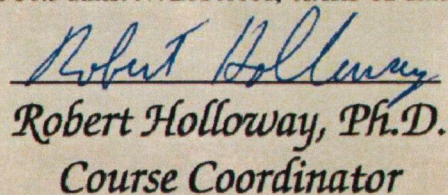 Robert Holloway
Robert Holloway, Ph.D.
Course Coordinator